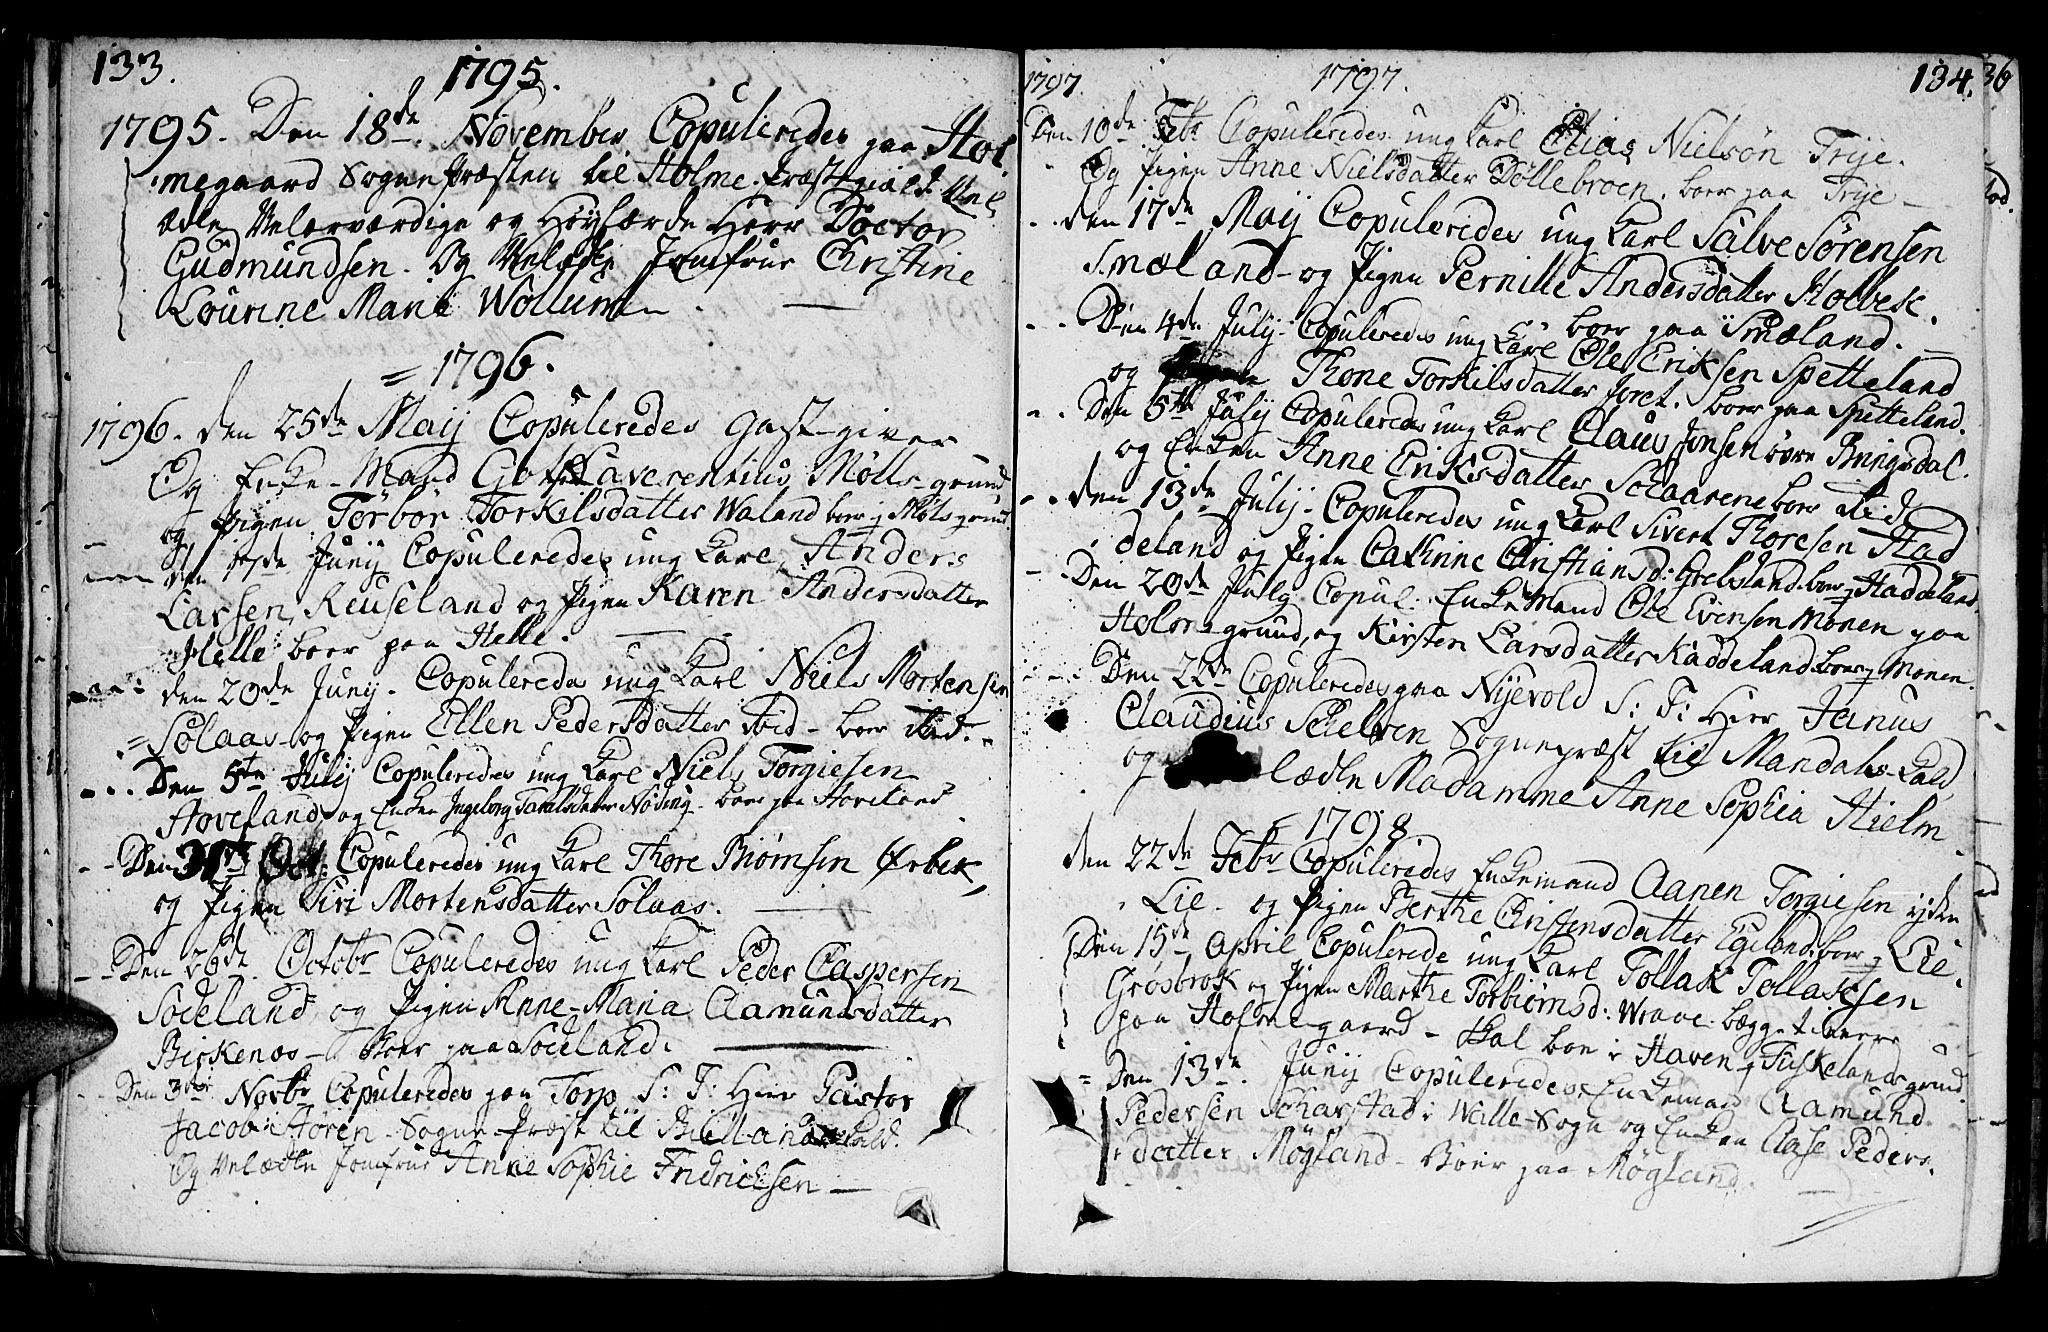 133.
1795.
1795. Den 18de November Copuleredes paa Hol
megaard Sogne Præsten til Holme Præstegield Vel
ædle Velærværdige og Høylærde Herr Doctor
Gudmundsen. Og Velædle Jomfrue Christine
Lourine Marie Wollum
= 1796.
1796. den 25de Maij Copuleredes Gastgiver
Og Enke-Mand Laverentius Mølls-grund
og Pigen Torbor Torkilsdatter Waland boer
den 17de Junij Copuleredes ung Karl Anders
Larsen, Reuseland og Pigen Karen Andersdatter
Helle boer paa Helle.
den 20de Junij. Copuleredes ung Karl Niels Mortensen
Solaas og Pigen Ellen Pedersdatter ibid - boer ibid.
Den 5te Julij Copuleredes ung Karl Niels Torgiesen
Hoveland og Enken Ingeborg Taraldsdatter Nøding - boer paa Hoveland
Den Oct: Copuleredes ung Karl Thore Biørnsen Ørbek,
og Pigen Siri Mortensdatter Solaas.
Den 26de Octobr Copuleredes ung Karl Peder Caspersen
Sodeland og Pigen Anne-Maria Aamundsdatter
Birkenes - Boer paa Sodeland.
Den 3die Novbr Copuleredes paa Torp S: T: Herr Pastor
Jacob Høren - Sogne-Præst til Biellands Kald.
Og Velædle Jomfrue Anne Sophie Fridrichsen
134.
36
1797.
1797.
Den 10de Febr Copuleredes ung Karl Elias Nielsøn Trye.
Og Pigen Anne Nielsdatter Døllebroen. boer paa Trye
den 17de Maij Copuleredes ung Karl Salve Sørensen
Smæland - og Pigen Pernille Andersdatter Holbek.
boer paa Smæland.
Den 4de Julij Copuleredes ung Karl Ole Eriksen Spetteland
og Thone Torkilsdatter Foret. boer paa Spetteland.
Den 5te Julij Copuleredes ung Karl Claus Jonsen øvre Bringsdal.
og Enken Anne Eriksdatter Schaarene boer ibid
den 13de Julij. Copuleredes ung Karl Sivert Thoresen Had
deland og Pigen Cathrine Christiansd: Grebsland. boer Haddeland.
Den 20de Julij Copul. Enke Mand Ole Evensen Monen paa
Holm-grund, og Kirsten Larsdatter Kaddeland boer Monen.
Den 22de Copuleredes paa Nyevold S: T: Herr Janus
Claudius Schelven Sognepræst til Mandahls-Kald
og lædle Madamme Anne Sophia Hielm
1798
den 22de Febr Copuleredes Enkemand Aanen Torgiesen
Lie - og Pigen Berthe Christensdatter Egeland. boer Lie.
Den 15de April Copulerede ung Karl Tollak Tollaksen
Grosbrok og Pigen Marthe Torbiørnsd: Wraae. begge tienere
paa Holmegaard - Skal boe i Haven Tuskelands grund.
Den 13de. Junij Copuleredes Enkemand Aamund
Pedersen Scharstad i Walle-Sogn og Enken Aase Peders
datter Møgland - Boer paa Møgland.